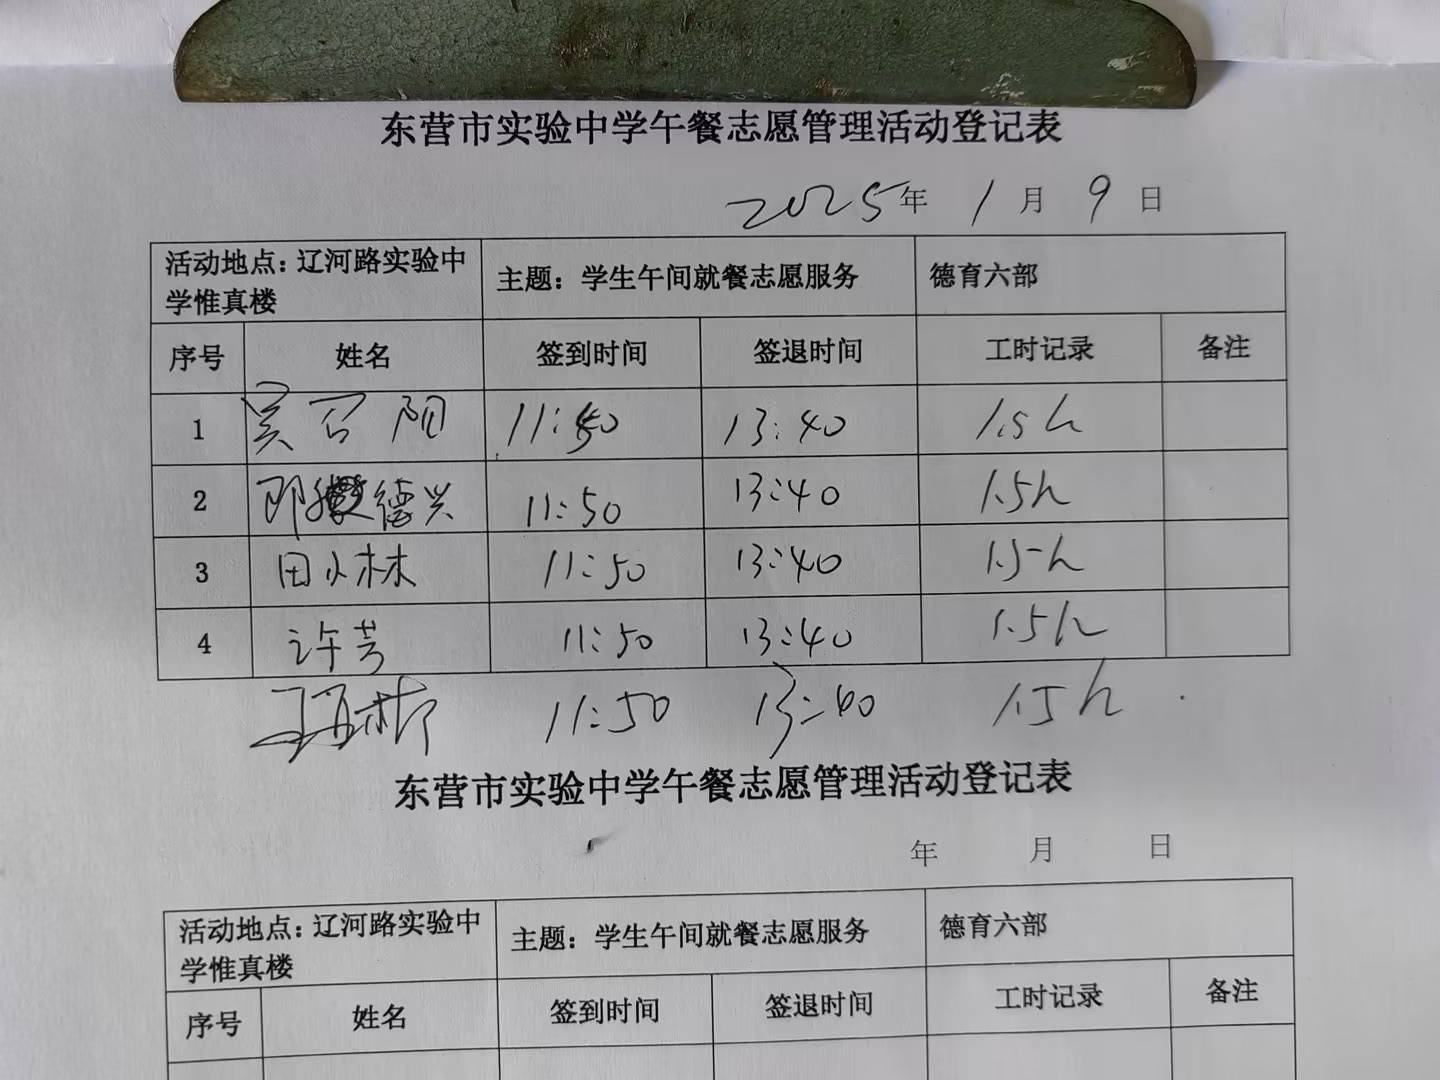 东营市实验中学午餐志愿管理活动登记表
2025年 1月 9日
活动地点：辽河路实验中学惟真楼 主题：学生午间就餐志愿服务 德育六部
序号 姓名 签到时间 签退时间 工时记录 备注
1 吴召阳 11:50 13:40 1.5h
2 邓德兴 11:50 13:40 1.5h
3 田小林 11:50 13:40 1.5h
4 许芳 11:50 13:40 1.5h
11:50 13:40 1.5h
东营市实验中学午餐志愿管理活动登记表
年 月 日
活动地点：辽河路实验中学惟真楼 主题：学生午间就餐志愿服务 德育六部
序号 姓名 签到时间 签退时间 工时记录 备注